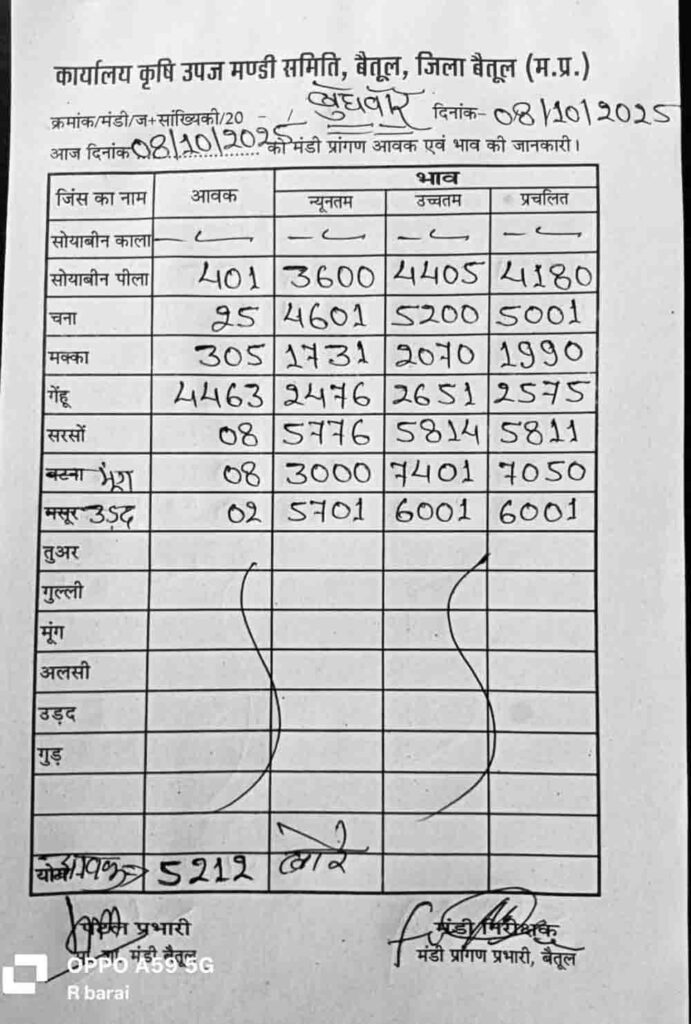 कार्यालय कृषि उपज मण्डी समिति, बैतूल, जिला बैतूल (म.प्र.)
बुधवार
क्रमांक/मंडी/ज+सांख्यिकी/20 - / दिनांक- 08/10/2025
आज दिनांक 08/10/2025 को मंडी प्रांगण आवक एवं भाव की जानकारी।
जिंस का नाम आवक भाव
न्यूनतम उच्चतम प्रचलित
सोयाबीन काला
सोयाबीन पीला 401 3600 4405 4180
चना 25 4601 5200 5001
मक्का 305 1731 2070 1990
गेंहू 4463 2476 2651 2575
सरसों 08 5776 5814 5811
बटना 08 3000 7401 7050
मसूर उड़द 02 5701 6001 6001
तुअर
गुल्ली
मूंग
अलसी
उड़द
गुड़
आवक 5212 बोरे
प्रभारी मंडी निरीक्षक
मंडी बैतूल मंडी प्रांगण प्रभारी, बैतूल
OPPO A59 5G
R barai